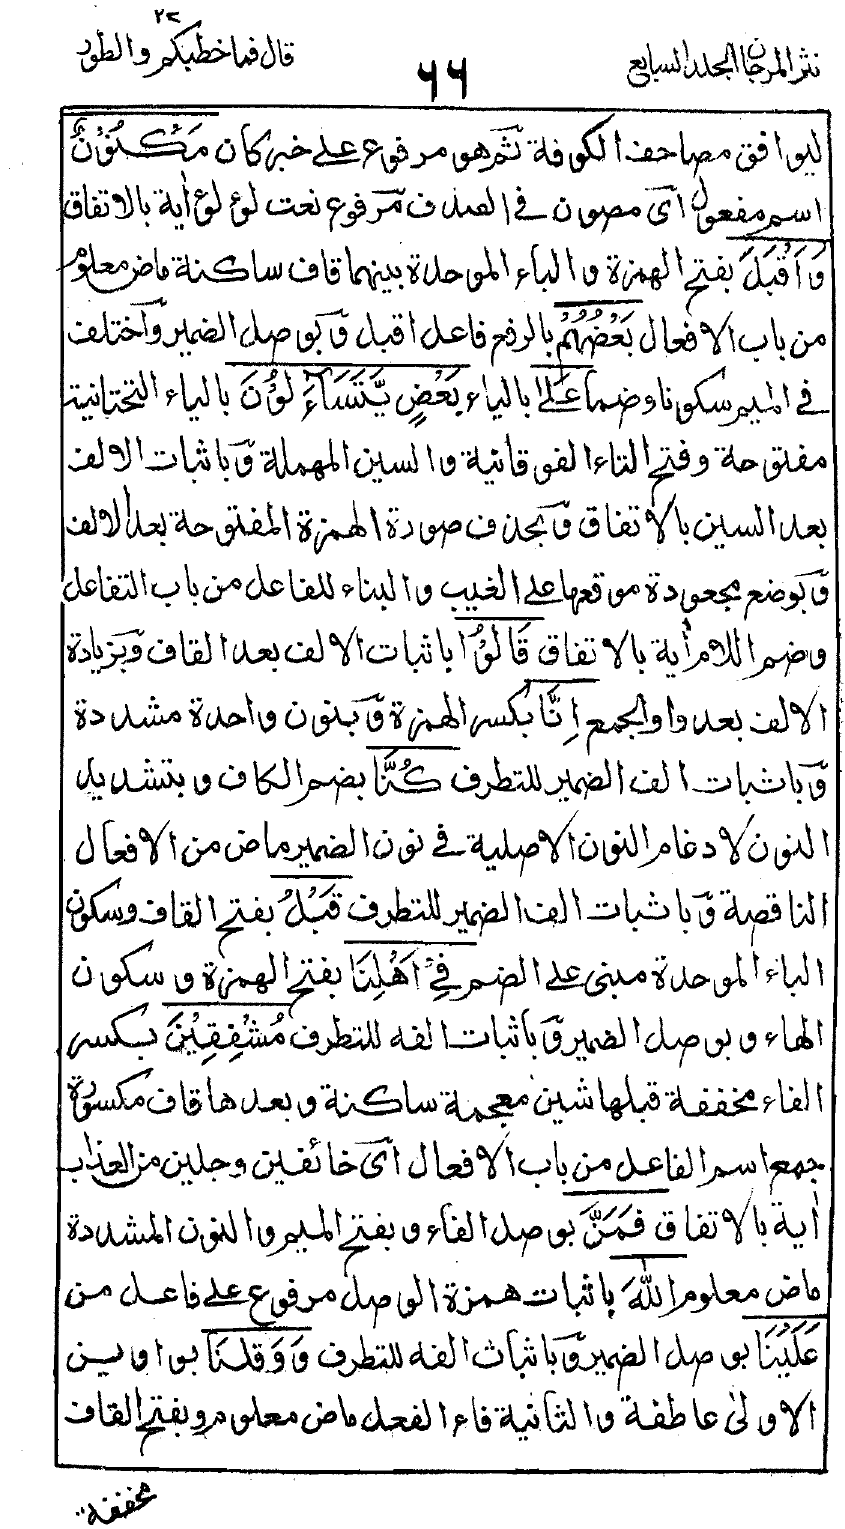 نثر المرجان الجلد السابع
٦٦
قال فما خطبكم والطور
٢٧
ليوافق مصاحف الكوفة ثم هو مرفوع على خبر كان مَكْنُوْنٌ
اسم مفعول اى مصون فى الصدف مرفوع نعت لؤلؤ اية بالاتفاق
وَاَقْبَلَ بفتح الهمزة والباء الموحدة بينهما قاف ساكنة ماض معلوم
من باب الافعال بَعْضُهُمْ بالرفع فاعل اقبل وبوصل الضمير واختلف
فى الميم سكونا وضما عَلٰى بالياء بَعْضٍ يَّتَسَآءَلُوْنَ بالياء التحتانية
مفتوحة وفتح التاء الفوقانية والسين المهملة وباثبات الالف
بعد السين بالاتفاق وبحذف صورة الهمزة المفتوحة بعد الالف
وبوضع مجعودة موقعها على الغيب والبناء للفاعل من باب التفاعل
وضم اللام اية بالاتفاق قَالُوْا باثبات الالف بعد القاف وبزيادة
الالف بعد واو الجمع اِنَّا بكسر الهمزة وبنون واحدة مشددة
وباثبات الف الضمير للتطرف كُنَّا بضم الكاف وبتشديد
النون لادغام النون الاصلية فى نون الضمير ماض من الافعال
الناقصة وباثبات الف الضمير للتطرف قَبْلُ بفتح القاف وسكون
الباء الموحدة مبنى على الضم فِىْ اَهْلِنَا بفتح الهمزة وسكون
الهاء وبوصل الضمير وباثبات الفه للتطرف مُشْفِقِيْنَ بكسر
الفاء مخففة قبلها شين معجمة ساكنة وبعدها قاف مكسورة
جمع اسم الفاعل من باب الافعال اى خائفين وجلين من العذاب
اية بالاتفاق فَمَنَّ بوصل الفاء وبفتح الميم والنون المشددة
ماض معلوم اللّٰهُ باثبات همزة الوصل مرفوع على فاعل من
عَلَيْنَا بوصل الضمير وباثبات الفه للتطرف وَوَقٰىنَا بواوين
الاولى عاطفة والثانية فاء الفعل ماض معلوم وبفتح القاف
مخففة